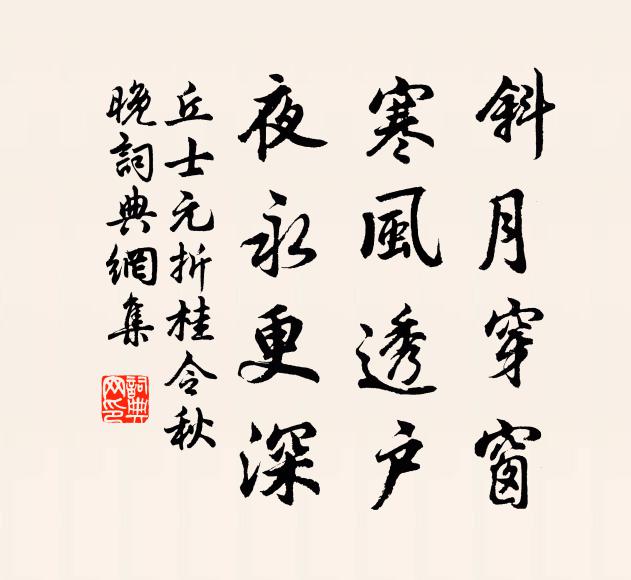 斜月穿窗
寒風透戶
夜永更深
丘士元折桂令秋
晚詞典網集
詞典
网印